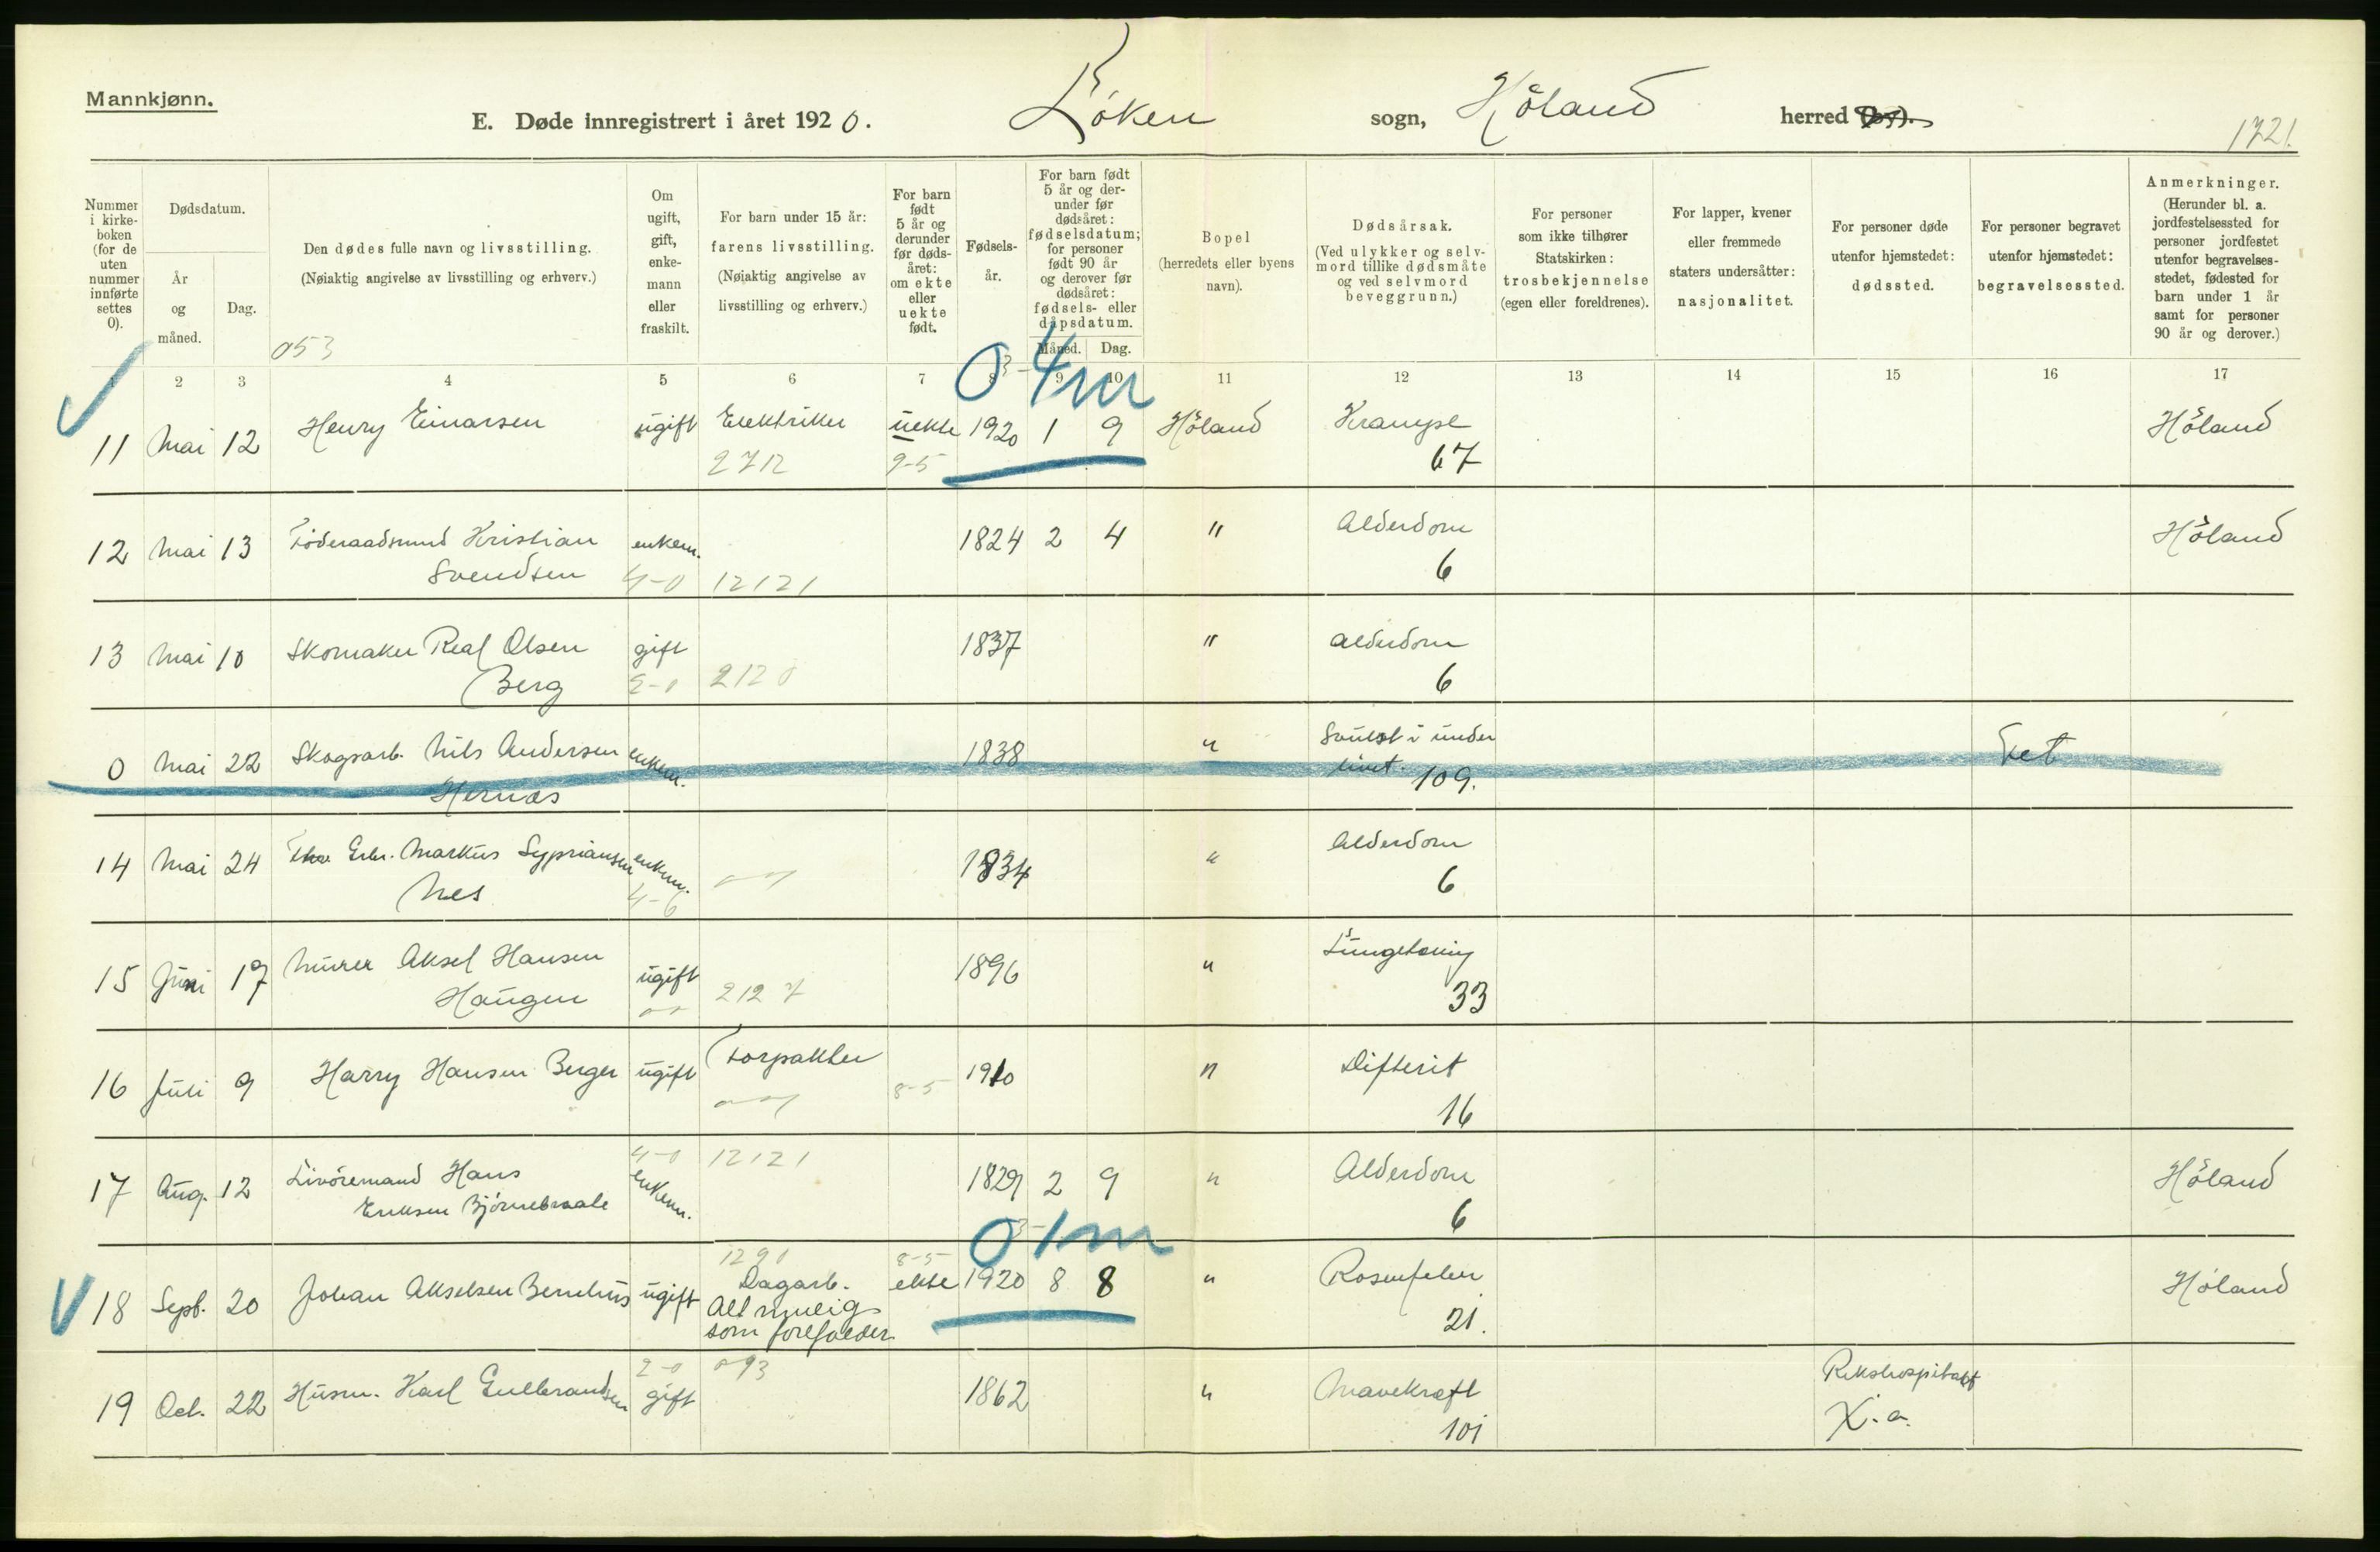 Mannkjønn.
E. Døde innregistrert i året 1920.
Løken sogn, Høland herred (by).
1721.
Nummer i kirkeboken (for de uten nummer innførte settes 0).
Dødsdatum.
År og måned.
Dag.
Den dødes fulle navn og livsstilling.
(Nøiaktig angivelse av livsstilling og erhverv.)
053
Om ugift, gift, enkemann eller fraskilt.
For barn under 15 år: farens livsstilling.
(Nøiaktig angivelse av livsstilling og erhverv.)
For barn født 5 år og derunder før dødsåret: om ekte eller uekte født.
Fødselsår.
For barn født 5 år og derunder før dødsåret: fødselsdatum; for personer født 90 år og derover før dødsåret: fødsels- eller dåpsdatum.
Måned. Dag.
Bopel (herredets eller byens navn).
Dødsårsak.
(Ved ulykker og selvmord tillike dødsmåte og ved selvmord beveggrunn.)
For personer som ikke tilhører Statskirken: trosbekjennelse (egen eller foreldrenes).
For lapper, kvener eller fremmede staters undersåtter: nasjonalitet.
For personer døde utenfor hjemstedet: dødssted.
For personer begravet utenfor hjemstedet: begravelsessted.
Anmerkninger.
(Herunder bl. a. jordfestelsessted for personer jordfestet utenfor begravelsesstedet, fødested for barn under 1 år samt for personer 90 år og derover.)
2 3 4 5 6 7 8 9 10 11 12 13 14 15 16 17
0 4 m
11 Mai 12 Henry Einarsen ugift Elektriker uekte 1920 1 9 Høland Krampe Høland
2712 9-5 67
12 Mai 13 Føderaadsmand Kristian enkem. 1824 2 4 " Alderdom Høland
Svendsen 4-0 12121 6
13 Mai 10 Skomaker Real Olsen gift 1837 " Alderdom
Berg 2-0 2120 6
0 Mai 22 Skogsarb. Nils Andersen enkem. 1838 " Svulst i under Fet
Hernæs livet. 109.
14 Mai 24 Gbr. Markus Sypriansen enkem. 1834 " Alderdom
Nes 4-6 6
15 Juni 17 Murer Aksel Hansen ugift 1896 " Lungetæring
Haugen 2127 33
16 Juli 9 Harry Hansen Berger ugift Forpakter 8-5 1910 " Difterit
16
4-0 12121
17 Aug. 12 Livøremand Hans enkem. 1829 2 9 " Alderdom Høland
Eriksen Bjørnebraate 6
0 1 m
1290 8-5
18 Sept. 20 Johan Akselsen ugift Dagarb. ekte 1920 8 8 " Rosenfeber Høland
Alt mulig 21.
som forefalder
2-0 093
19 Oct. 22 Husm. Karl Gulbrandsen gift 1862 " Mavekræft Rikshospitalet
101 X.a.